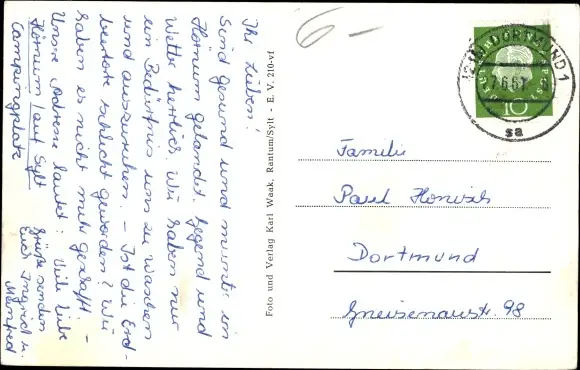 Ihr Lieben!
Sind gesund und munter in
Hörnum gelandet. Gegend und
Wetter herrlich. Wir haben nur
ein Bedürfnis uns zu waschen
und auszuruhen. - Ist die Erd-
beertorte schlecht geworden? Wir
haben es nicht mehr geschafft -
Unsere Adresse lautet:
Hörnum / auf Sylt
Campingplatz
Viele liebe
Grüße senden
Euch Ingrid u.
Manfred
Foto und Verlag Karl Waak, Rantum/Sylt - E. V. 210-vf
6 -
DORTMUND 1
.6.61
sa
10
Familie
Paul
Dortmund
Gneisenaustr. 98